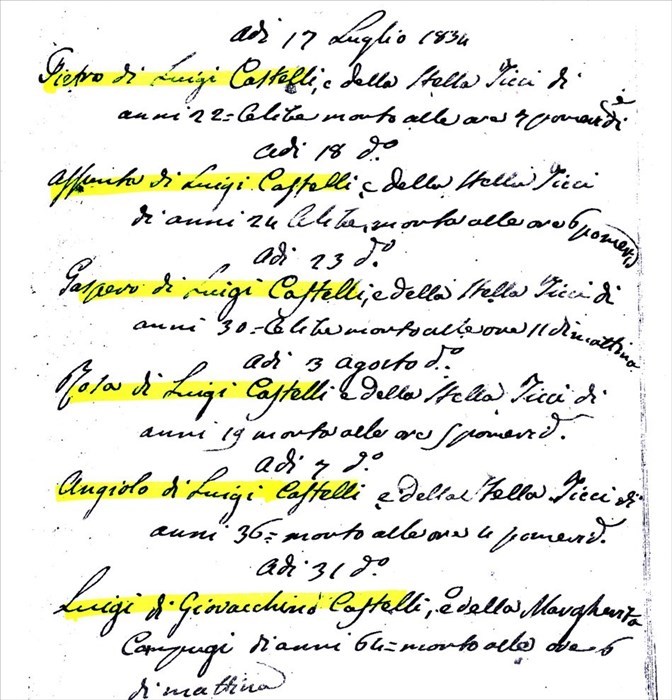 adi 17 Luglio 1834
Pietro di Luigi Castelli, e della Stella Ticci di
anni 22 = Celibe morto alle ore 7 pomerid.e
adi 18 d.o
Assunta di Luigi Castelli e della Stella Ticci
di anni 24 Celibe, morta alle ore 6 pomerid
adi 23 d.o
Gaspero di Luigi Castelli, e della Stella Ticci di
anni 30 = Celibe morto alle ore 11 di mattina
adi 3 agosto d.o
Rosa di Luigi Castelli e della Stella Ticci di
anni 19 morta alle ore 5 pomerid.
adi 7 d.o
Angiolo di Luigi Castelli e della Stella Ticci di
anni 36 = morto alle ore 4 pomerid.
adi 31 d.o
Luigi di Giovacchino Castelli, e della Margherita
Campugi di anni 64 = morto alle ore 6
di mattina